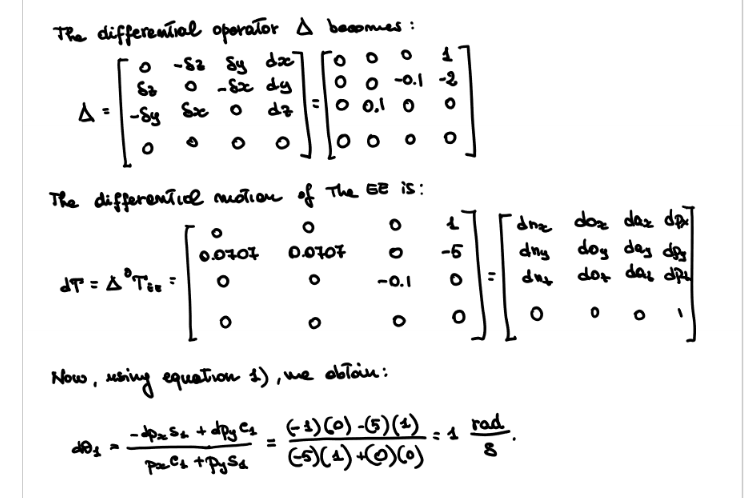 The differential operator Δ becomes :
Δ = [ 0 -δz δy dx ; δz 0 -δx dy ; -δy δx 0 dz ; 0 0 0 0 ] = [ 0 0 0 1 ; 0 0 -0.1 -2 ; 0 0.1 0 0 ; 0 0 0 0 ]
The differential motion of the EE is :
dT = Δ ⁰T_EE = [ 0 0 0 1 ; 0.0707 0.0707 0 -5 ; 0 0 -0.1 0 ; 0 0 0 0 ] = [ dnx dox dax dpx ; dny doy day dpy ; dnz doz daz dpz ; 0 0 0 1 ]
Now, using equation 1), we obtain :
dθ₁ = (-dpx s₁ + dpy c₁) / (px c₁ + py s₁) = ((-1)(0) - (5)(1)) / ((-5)(1) + (0)(0)) = 1 rad / s .